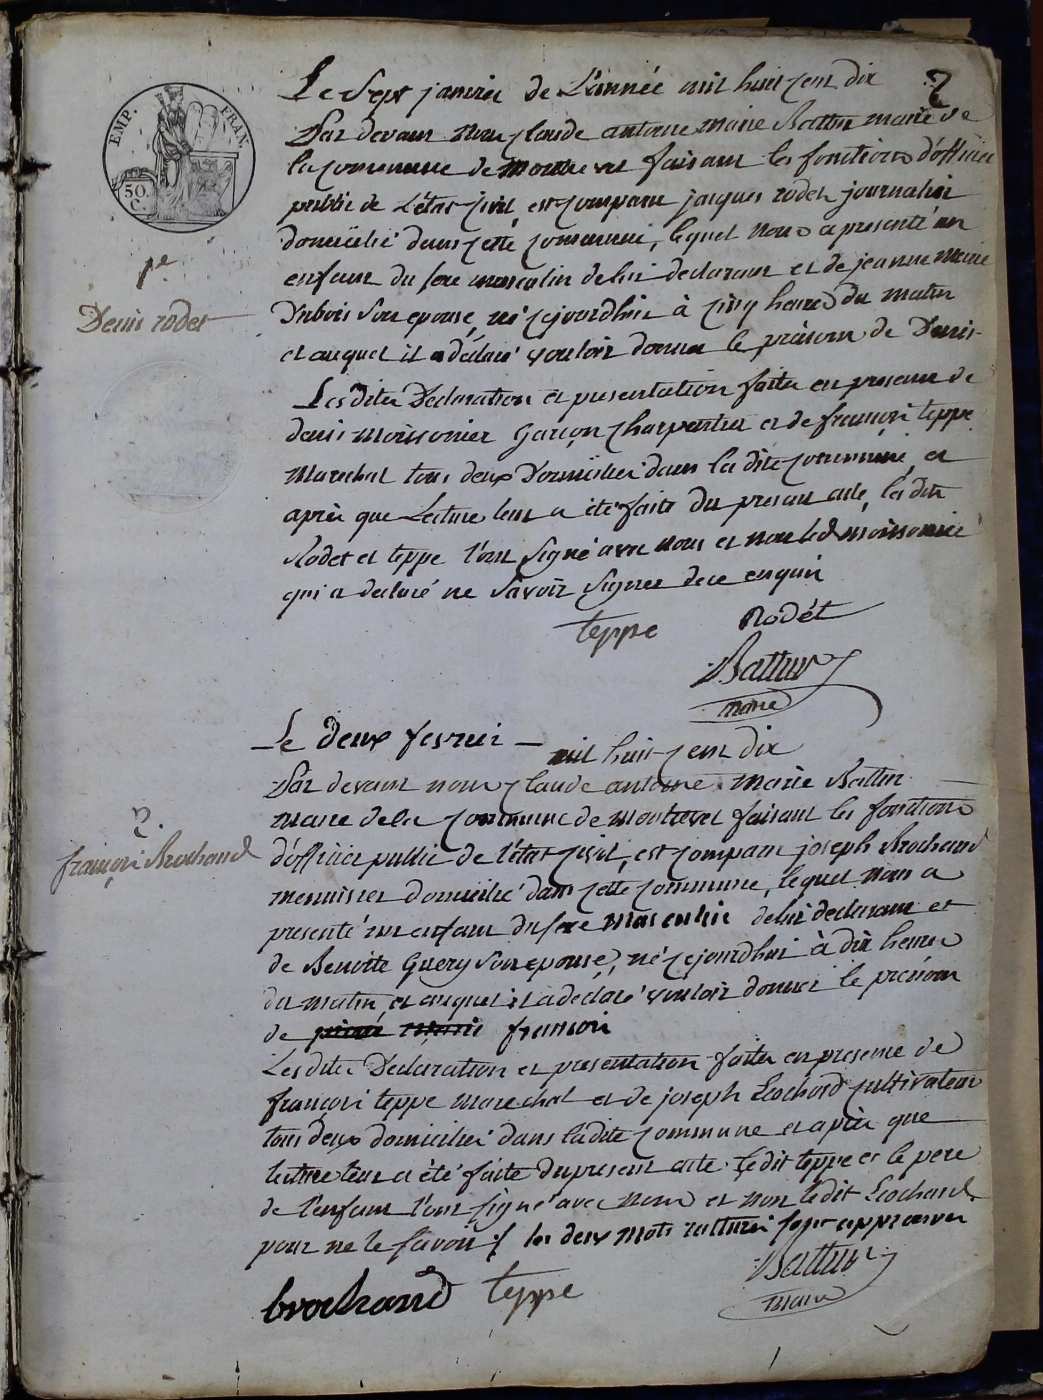 2
EMP. FRAN.
50 C.
Le Sept janvier de L'année mil huit cent dix
Par devant nous Claude antoine Marie Battur maire de
la commune de Montrevel faisant les fonctions d'officier
public de L'état civil, est comparu jacques rodet journalier
domicilié dans cette commune, lequel nous a presenté un
enfant du sexe masculin de lui declarant et de jeanne Marie
1er
Denis rodet
Dubois Son epouse, né cejourdhui à cinq heures du matin
et auquel il a déclaré vouloir donner le prénom de Denis
Lesdites Declaration et presentation faites en presence de
denis moissonier Garçon Charpentier et de françois teppe
Marechal tous deux Domiciliés dans la dite commune, et
après que Lecture leur a été faite du present acte, les dits
Rodet et teppe l'ont Signé avec nous et non led moissonnié
qui a declaré ne Savoir Signer de ce enquis
teppe Rodét
Battur
maire
Le deux fevrier mil huit cent dix
Par devant nous Claude antoine Marie Battur
maire de la commune de Montrevel faisant les fonctions
2.
françois Brochand
d'officier public de l'état civil, est comparu joseph Brochand
menuisier domicilié dans cette commune, lequel nous a
presenté un enfant du sexe masculin de lui declarant et
de Benoite Guery Son epouse, né cejourdhui à dix heures
du matin, et auquel il a declaré vouloir donner le prénom
de françois
Lesdites Declaration et presentation faites en presence de
françois teppe marechal et de joseph Cochard cultivateur
tous deux domiciliés dans ladite commune et après que
lecture leur a été faite du present acte ledit teppe et le pere
de l'enfant l'ont signé avec nous et non ledit Cochard
pour ne le savoir les deux mots ratturés sont approuvés
Battur
maire
brochand teppe